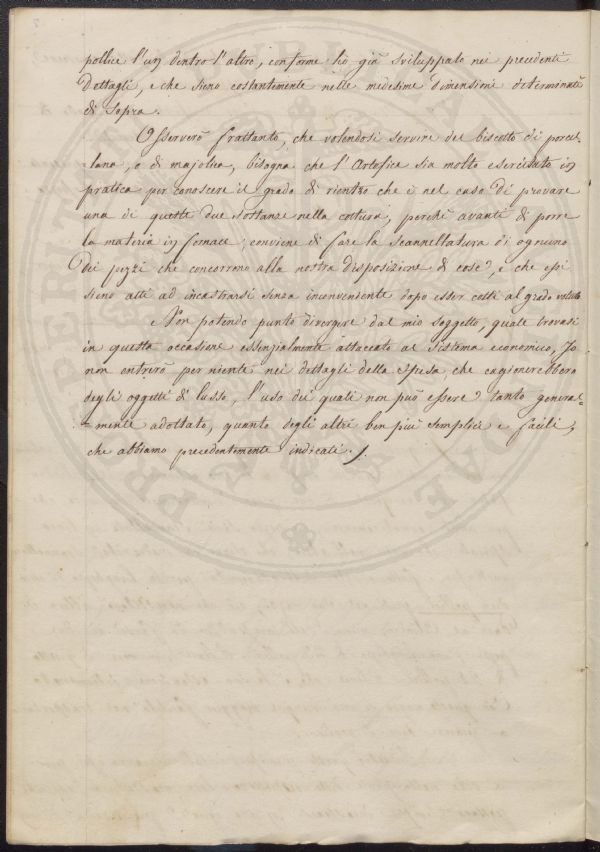 pollice l'un dentro l'altro, conforme ho già sviluppato nei precedenti
Dettagli, e che sieno costantemente nelle medesime dimensioni determinate
di sopra.
Osserverò frattanto, che volendosi servire del biscotto di porcel-
lana, o di majolica, bisogna che l'Artefice sia molto esercitato in
pratica per conoscere il grado di rientro che è nel caso di provare
una di queste due sostanze nella cottura, perchè avanti di porre
la materia in fornace, conviene di fare la scannellatura di ognuno
dei pezzi che concorrono alla nostra disposizione di cose, e che essi
sieno atti ad incastrarsi senza inconveniente dopo esser cotti al grado voluto.
Non potendo punto divergere dal mio soggetto, quale trovasi
in questa occasione essenzialmente attaccato al sistema economico, Io
non entrerò per niente nei dettagli della spesa, che cagionerebbero
degli oggetti di lusso, l'uso dei quali non può essere tanto general-
-mente adottato, quanto degli altri ben più semplici e facili,
che abbiamo precedentemente indicati.
PROSPERITATI